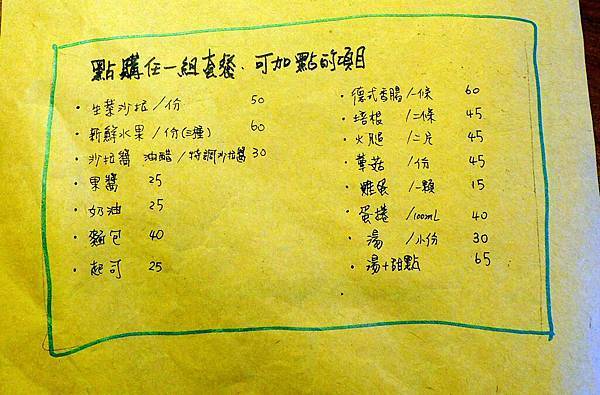 點購任一組套餐、可加點的項目
·生菜沙拉/份 50
·新鮮水果/份(三種) 60
·沙拉醬 油醋/特調沙拉醬 30
·果醬 25
·奶油 25
·麵包 40
·起司 25
·德式香腸/一條 60
·培根 /二條 45
·火腿 /二片 45
·蘑菇 /份 45
·雞蛋 /一顆 15
·蛋捲 /100mL 40
·湯 /小份 30
·湯+甜點 65